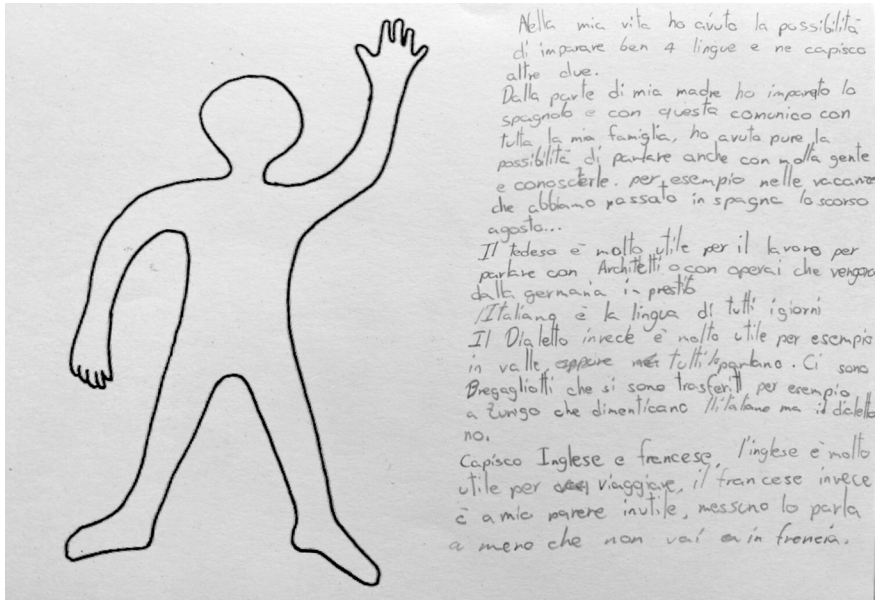 Nella mia vita ho avuto la possibilità
di imparare ben 4 lingue e ne capisco
altre due.
Dalla parte di mia madre ho imparato lo
spagnolo e con questa comunico con
tutta la mia famiglia, ho avuto pure la
possibilità di parlare anche con molta gente
e conoscterle. per esempio nelle vacanze
che abbiamo passato in spagna lo scorso
agosto...
Il tedeso è molto utile per il lavoro per
parlare con Architetti o con operai che vengono
dalla germania in prestito
l'Italiano è la lingua di tutti i giorni
Il Dialetto invece è molto utile per esempio
in valle, tutti lo parlano. Ci sono
Bregagliotti che si sono trasferiti per esempio
a Zurigo che dimenticano l'italiano ma il dialetto
no.
Capisco Inglese e francese, l'inglese è molto
utile per viaggiare, il francese invece
è a mio parere inutile, nessuno lo parla
a meno che non vai in francia.